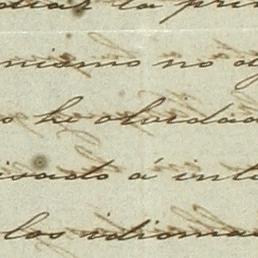 la pri
mismo no
he olvidad
isado á inte
los idiomas